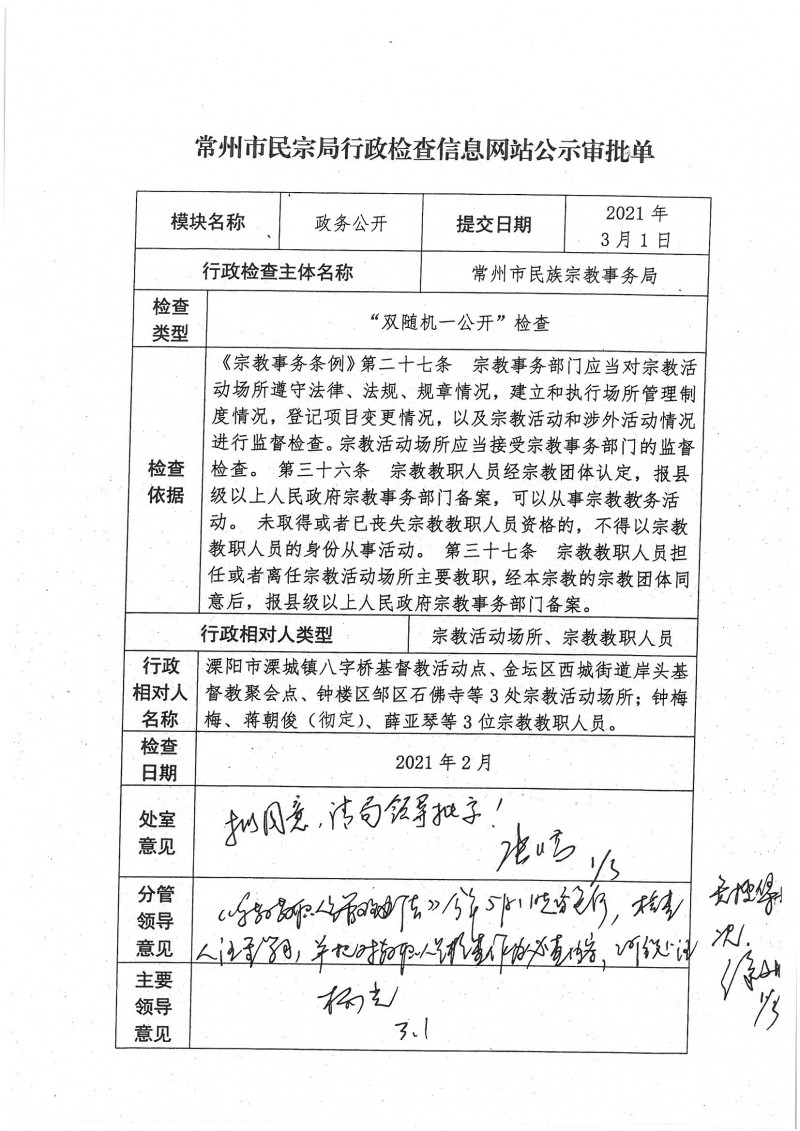 常州市民宗局行政检查信息网站公示审批单
模块名称 政务公开 提交日期 2021 年
3 月 1 日
行政检查主体名称 常州市民族宗教事务局
检查
类型
“双随机一公开”检查
检查
依据
《宗教事务条例》第二十七条 宗教事务部门应当对宗教活
动场所遵守法律、法规、规章情况，建立和执行场所管理制
度情况，登记项目变更情况，以及宗教活动和涉外活动情况
进行监督检查。宗教活动场所应当接受宗教事务部门的监督
检查。 第三十六条 宗教教职人员经宗教团体认定，报县
级以上人民政府宗教事务部门备案，可以从事宗教教务活
动。 未取得或者已丧失宗教教职人员资格的，不得以宗教
教职人员的身份从事活动。 第三十七条 宗教教职人员担
任或者离任宗教活动场所主要教职，经本宗教的宗教团体同
意后，报县级以上人民政府宗教事务部门备案。
行政相对人类型 宗教活动场所、宗教教职人员
行政
相对人
名称
溧阳市溧城镇八字桥基督教活动点、金坛区西城街道岸头基
督教聚会点、钟楼区邹区石佛寺等 3 处宗教活动场所；钟梅
梅、蒋朝俊（彻定）、薛亚琴等 3 位宗教教职人员。
检查
日期
2021 年 2 月
处室
意见
拟同意，请局领导批字！
1/3
分管
领导
意见
主要
领导
意见
3.1